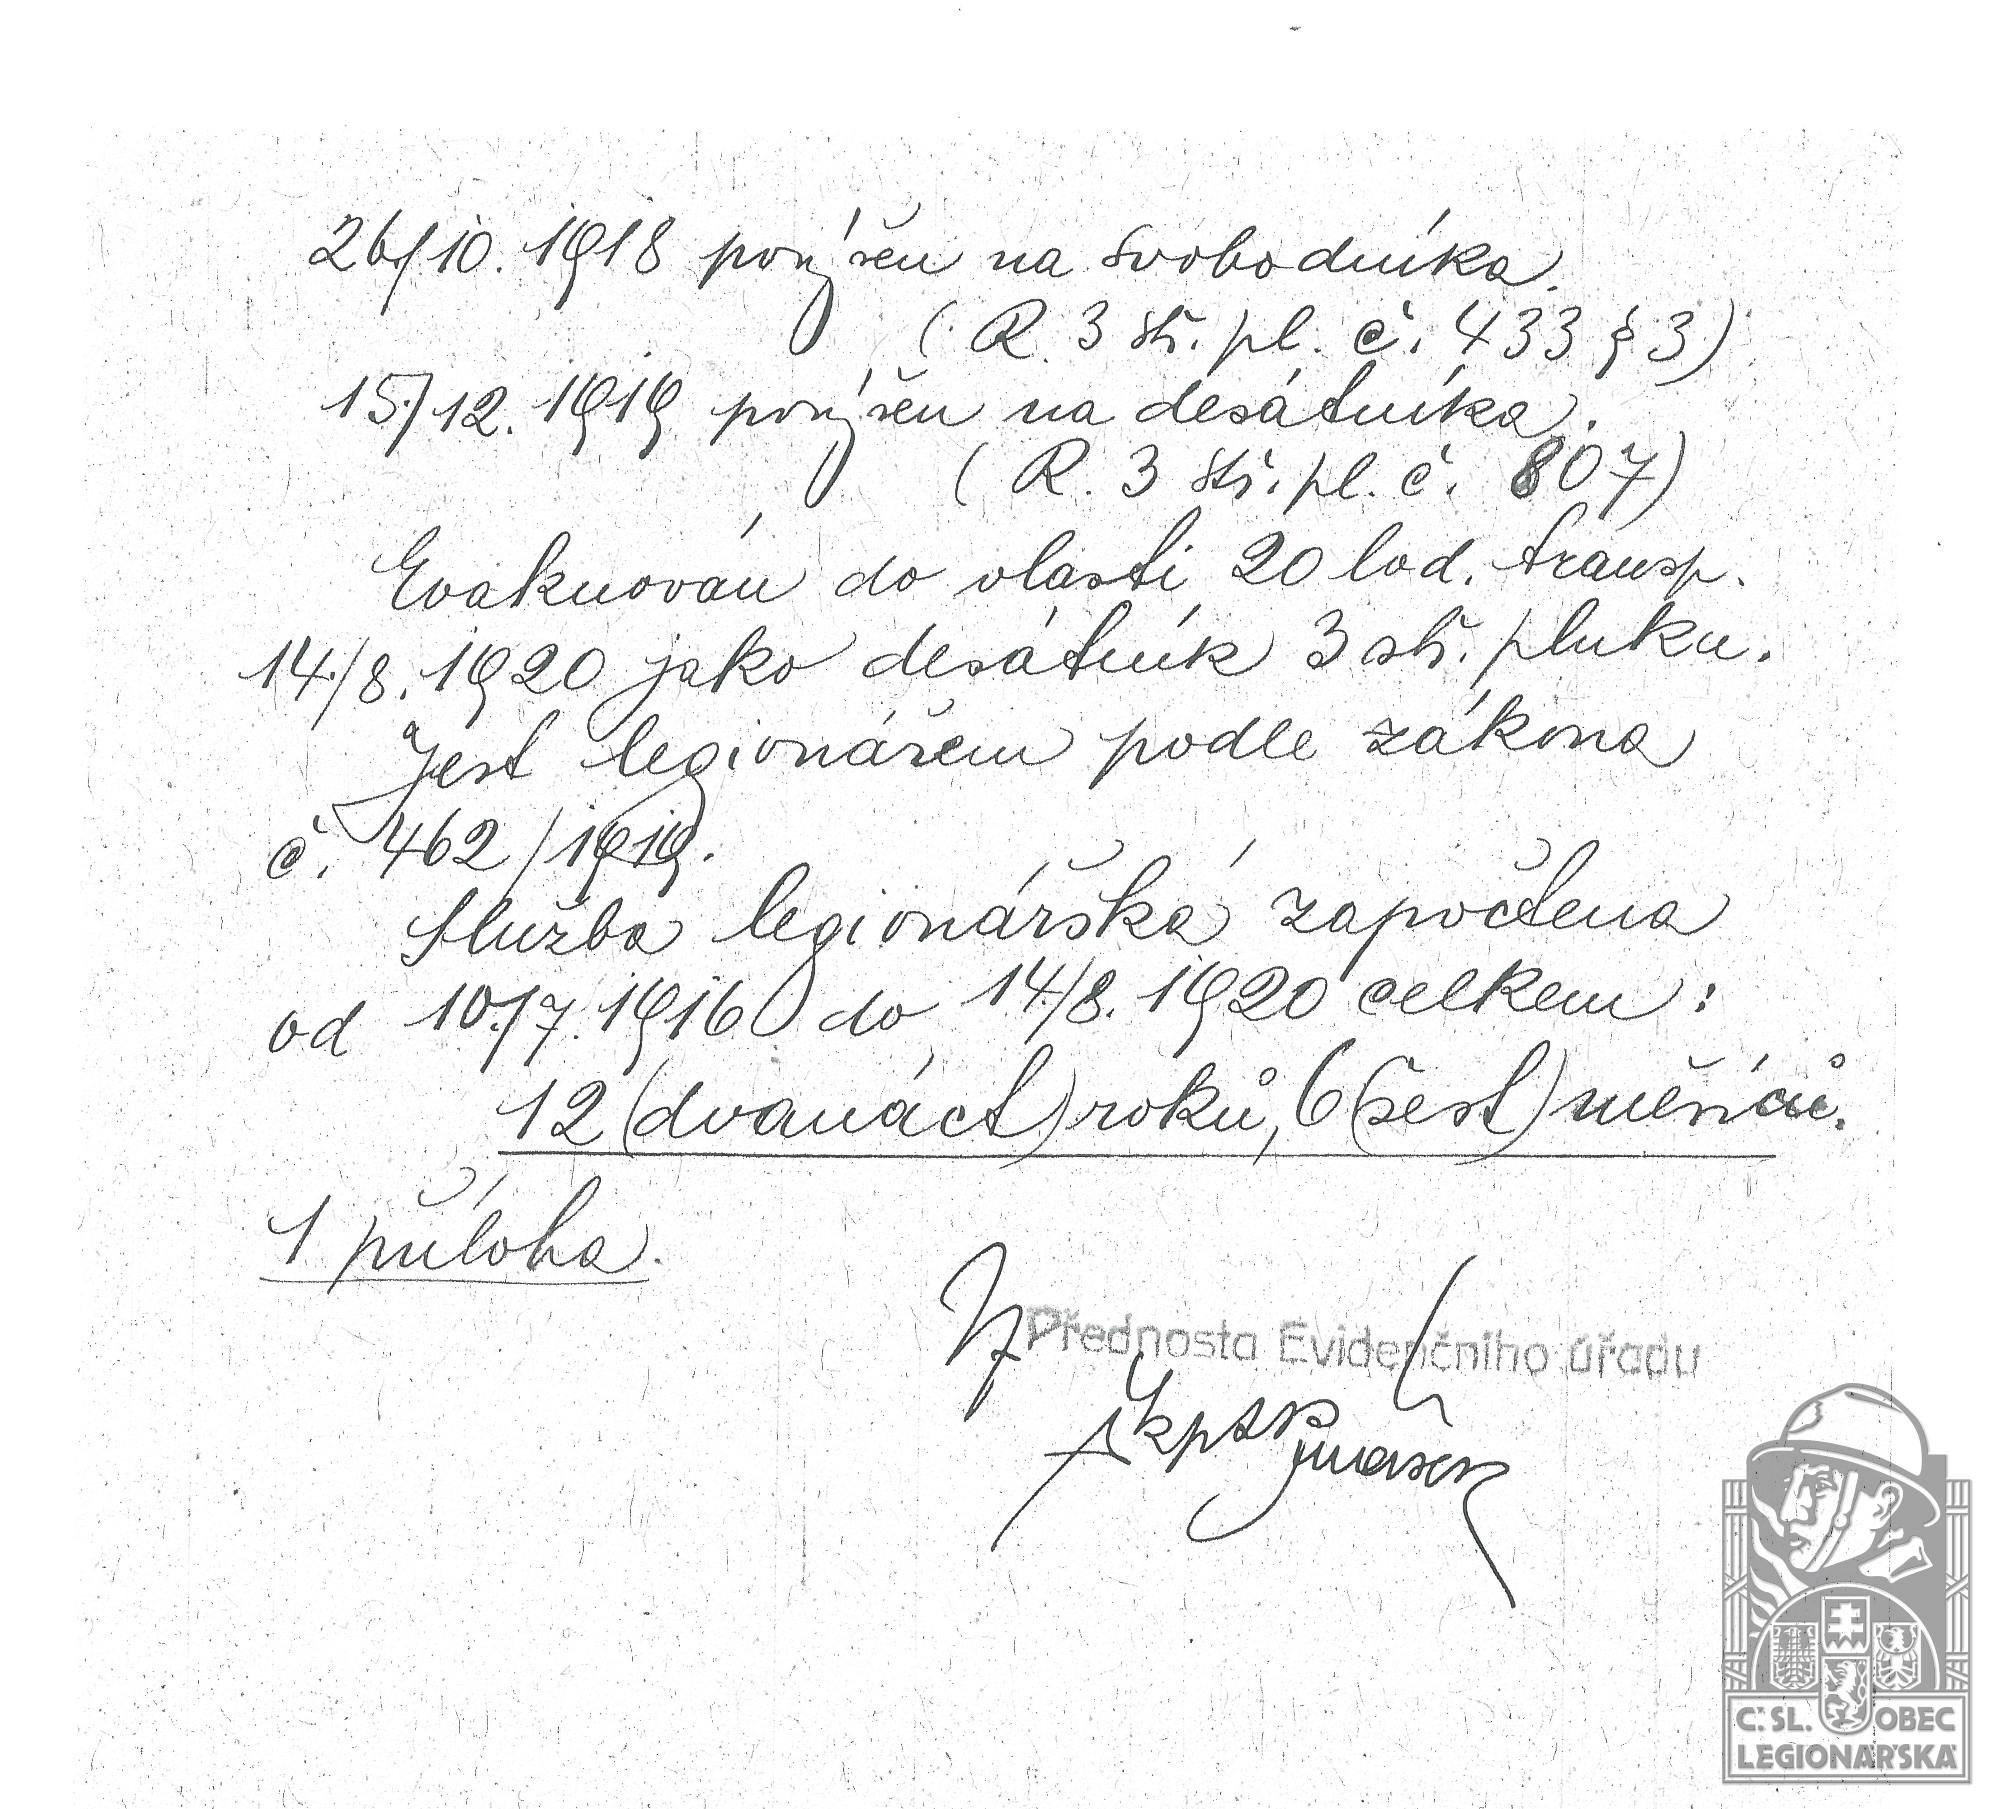 26/10. 1918 povýšen na svobodníka.
(R. 3 stř. pl. č. 433 § 3)
15./12. 1919 povýšen na desátníka.
(R. 3 stř. pl. č. 807)
Evakuován do vlasti 20 lod. transp.
14./8. 1920 jako desátník 3 stř. pluku.
Jest legionářem podle zákona
č. 462/1919.
Služba legionářská započtena
od 10./7. 1916 do 14./8. 1920 celkem:
12 (dvanáct) roků, 6 (šest) měsíců.
1 příloha.
Přednosta Evidenčního úřadu
škpt.
Č. SL. OBEC
LEGIONÁŘSKÁ